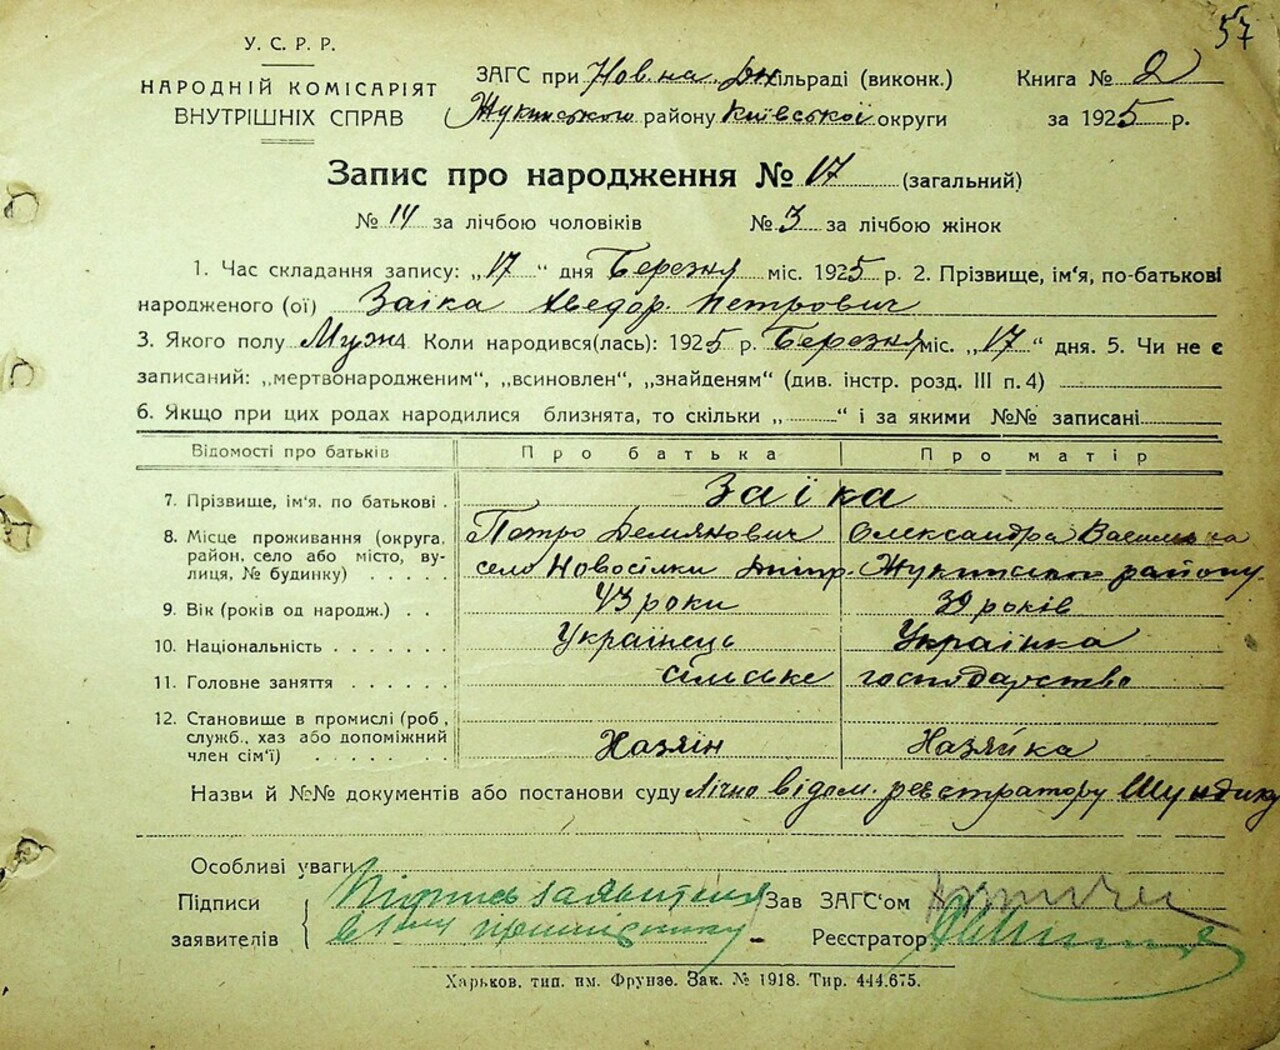 57
У. С. Р. Р.
НАРОДНІЙ КОМІСАРІЯТ
ВНУТРІШНІХ СПРАВ
ЗАГС при Нов. на. Дн. сільраді (виконк.)
Жукинського району Київської округи
Книга № 2
за 1925 р.
Запис про народження № 17 (загальний)
№ 14 за лічбою чоловіків № 3 за лічбою жінок
1. Час складання запису: „17“ дня Березня міс. 1925 р. 2. Прізвище, ім‘я, по-батькові
народженого (ої) Заіка Хведор. Петрович
3. Якого полу Мужч Коли народився(лась): 1925 р. Березня міс. „17“ дня. 5. Чи не є
записаний: „мертвонародженим“, „всиновлен“, „знайденям“ (див. інстр. розд. III п. 4)
6. Якщо при цих родах народилися близнята, то скільки „ “ і за якими №№ записані
Відомості про батьків Про батька Про матір
7. Прізвище, ім‘я, по батькові . Заїка
8. Місце проживання (округа, Петро Демянович Олександра
район, село або місто, ву- село Новосілки Дніпр. Жукинського району
лиця, № будинку) . . . . .
9. Вік (років од народж.) . . 43 роки 39 років
10. Національність . . . . . . . Українець Українка
11. Головне заняття . . . . . . сільське господарство
12. Становище в промислі (роб,
служб., хаз або допоміжний
член сім‘ї) . . . . . . . Хазяїн Хазяйка
Назви й №№ документів або постанови суду Лічно відом. реєстратору Шундику
Особливі уваги
Підписи Підпись заявителя
заявителів в 1му примірнику
Зав ЗАГС‘ом
Реєстратор
Харьков, тип. им. Фрунзе. Зак. № 1918. Тир. 444.675.